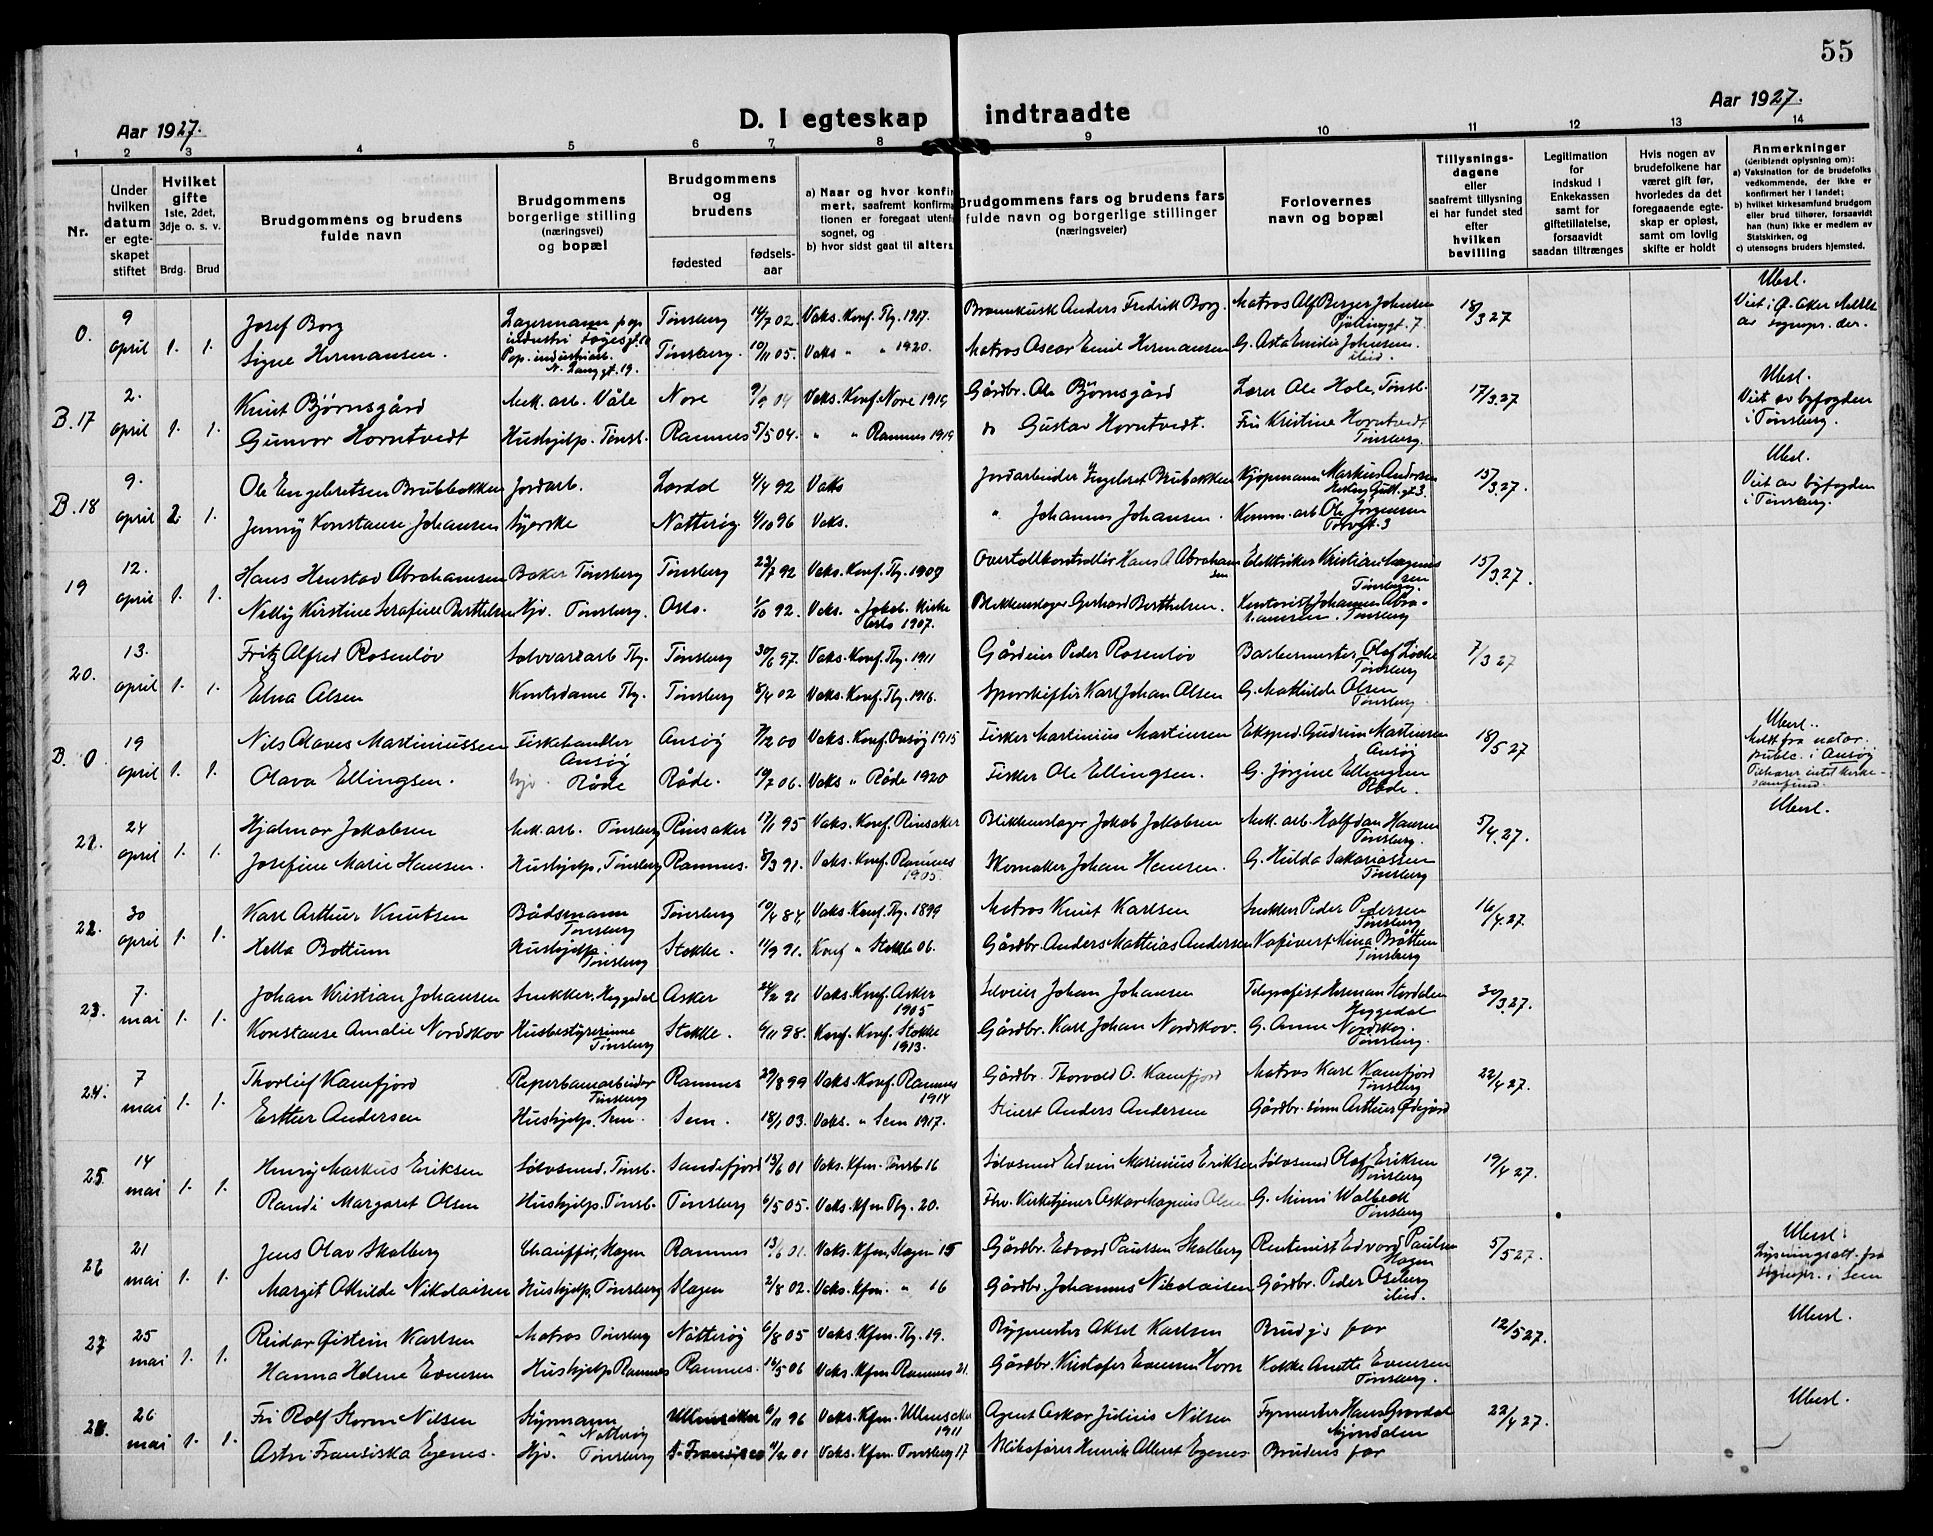 55
Aar 1927.
D. I egteskap indtraadte
Aar 1927.
1 2 3 4 5 6 7 8 9 10 11 12 13 14
Nr.
Under hvilken datum er egteskapet stiftet
Hvilket gifte
1ste, 2det, 3dje o. s. v.
Brdg. Brud
Brudgommens og brudens fulde navn
Brudgommens borgerlige stilling (næringsvei) og bopæl
Brudgommens og brudens
fødested
fødselsaar
a) Naar og hvor konfirmert, saafremt konfirmationen er foregaat utenfor sognet, og
b) hvor sidst gaat til alters
Brudgommens fars og brudens fars fulde navn og borgerlige stillinger (næringsveier)
Forlovernes navn og bopæl
Tillysningsdagene eller saafremt tillysning ei har fundet sted efter hvilken bevilling
Legitimation for indskud i Enkekassen samt for giftetillatelse, forsaavidt saadan tiltrænges
Hvis nogen av brudefolkene har været gift før, hvorledes da det foregaaende egteskap er opløst, samt om lovlig skifte er holdt
Anmerkninger
(deriblandt oplysning om):
a) Vaksination for de brudefolks vedkommende, der ikke er konfirmert her i landet;
b) hvilket kirkesamfund brudgom eller brud tilhører, forsaavidt han (hun) ikke er medlem av Statskirken, og
c) utensogns bruders hjemsted.
0. 9 april 1. 1. Josef Borg Lagermann Tønsberg 14/7 02 Vaks. Konf. Tbg. 1917. Anders Fredrik Borg. Matros Alf Berger Johnsen 18/3 27 Ubesl.
Signe Hermansen. Pap. industriarb. N. Langgt. 19. Tønsberg. 10/11 05. Vaks " " 1920. Matros Oscar Emil Hermansen G. Asta Emilie Johnsen. ibid.
B. 17 2. april 1. 1. Knut Bjørnsgård Mek. arb. Våle Nore 9/9 04 Vaks. Konf. Nore 1919 Gårdbr. Ole Bjørnsgård Lærer Ole Hole, Tønsb. 17/3 27 Ubesl. Viet av byfogden i Tønsberg.
Gunvor Horntvedt Hushjelp. Tønsb. Ramnes 5/5 04. " " Ramnes 1919 do Gustav Horntvedt. Frk Kristine Horntvedt Tønsberg.
B. 18 9. april 2. 1. Ole Engebretsen Brubakken Jordarb. Lardal 4/4 92 Vaks Jordarbeider Ingebret Brubakken Kjøpmann Markus Andersen 15/3 27. Ubesl. Viet av byfogden i Tønsberg.
Jenny Konstanse Johansen Syerske Nøtterøy. 4/10 96 Vaks. " Johannes Johansen. Komm. arb Ole Jørgensen Torvgt. 3
19 12. april 1. 1. Hans Henstav Abrahamsen Baker Tønsberg Tønsberg 23/7 92 Vaks. Konf. Tbg. 1907 Overtollkontrollør Hans A Abrahamsen Elektriker Kristian Magnussen Tønsberg. 15/3 27.
Nelly Kirstine Serafine Berthelsen Hjv. Tønsberg. Oslo. 1/10 92. Vaks. " Jakob. Kirke Oslo 1907. Blikkenslager Gerhard Berthelsen. Kontorist Johannes Abrahamsen. Tønsberg
20. 13. april 1. 1. Fritz Alfred Rosenløv Sølvvarearb Tbg. Tønsberg 30/6 97. Vaks. Konf. Tbg. 1911 Gårdeier Peder Rosenløv Barbermester Olaf Løche Tønsberg 7/3 27
Elna Olsen Kontordame Tbg. Tønsberg 8/4 02 Vaks. Konf. Tbg. 1916. Sporskifter Karl Johan Olsen G. Mathilde Olsen Tønsberg
B. 0 19 april 1. 1. Nils Olaves Martiniussen Fiskehandler Onsøy Onsøy 7/12 00 Vaks. Konf. Onsøy 1915 Fisker Martinius Martinsen Eksped. Gudrun Martinsen Onsøy 18/5 27 Ubesl. Meldt fra notar. public. i Onsøy Tilhører intet kirkesamfund.
Olava Ellingsen. hjv. Råde Råde. 10/7 06. Vaks " Råde 1920 Fisker Ole Ellingsen. G. Jørgine Ellingsen Råde.
21. 24 april 1. 1. Hjalmar Jakobsen Mek. arb. Tønsberg Rinsaker 17/11 95 Vaks. Konf. Rinsaker Blikkenslager Jakob Jakobsen Mek. arb. Halfdan Hansen Tønsberg. 5/4 27. Ubesl.
Josefine Marie Hansen. Hushjelp. Tønsberg Ramnes. 8/3 91. Vaks. Konf. Ramnes 1905. Skomaker Johan Hansen. G. Hulda Sakariassen Tønsberg
22. 30 april 1. 1. Karl Arthur Knutsen Bådsmann Tønsberg Tønsberg 10/4 84 Vaks. Konf. Tbg. 1899 Matros Knut Karlsen Snekker Peder Pedersen Tønsberg 16/4 27.
Hella Bottum Hushjelp. Tønsberg Stokke. 11/9 91. Konf " Stokke 06. Gårdbr. Anders Mathias Andersen Kafévert Mina Bråtten Tønsberg
23. 7. mai 1. 1. Johan Kristian Johansen Snekker, Heggedal Asker 24/2 91 Vaks. Konf. Asker 1905 Selveier Johan Johansen Telegrafist Herman Stordalen Heggedal 30/3 27.
Konstanse Amalie Nordskov Husbestyrerinne Tønsberg Stokke. 6/11 98. Konf. Konf. Stokke 1913. Gårdbr. Karl Johan Nordskov. G. Anne Nordskog. Tønsberg.
24. 7 mai 1. 1. Thorleif Kamfjord Reperbanearbeider Tønsberg Ramnes 29/8 99 Vaks. Konf. Ramnes 1914 Gårdbr. Thorvald O. Kamfjord Matros Karl Kamfjord Tønsberg 22/4 27.
Esther Andersen Hushjelp. Sem. Sem. 18/1 03. Vaks. " Sem 1917. Anders Andersen Gårdbr. sønn Arthur Ødegård
25. 14 mai 1. 1. Henry Markus Eriksen Sølvsmed. Tønsb. Sandefjord 13/6 01 Vaks. Kfm. Tønsb 16 Sølvsmed Edvin Marinius Eriksen Sølvsmed Olaf Eriksen Tønsberg 19/4 27.
Randi Margaret Olsen Hushjelp. Tønsb. Tønsberg 6/5 05. Vaks. Kfm Tbg. 20. Fhv. Kirketjener Oskar Magnus Olsen G. Mimi Walbeck Tønsberg
26 21 mai 1. 1. Jens Olav Skalberg Chauffør, Slagen Ramnes 13/6 01. Vaks. Kfm. Slagen 15 Gårdbr. Edvard Paulsen Skalberg Rentenist Edvard Paulsen Slagen 5/5 27. Ubesl. Lysningsatt. fra sognepr. i Sem
Margit Othilde Nikolaisen Hushjelp. Tønsberg Slagen 2/8 02. Vaks. Kfm. " 16 Gårdbr. Johannes Nikolaisen Gårdbr. Peder Oseberg ibid.
27 25 mai 1. 1. Reidar Øistein Karlsen Matros Tønsberg Nøtterøy 6/8 05 Vaks. Kfm. Tbg. 19. Rygmester Aksel Karlsen Brudg's far 12/5 27. Ubesl.
Hanna Helene Evensen Hushjelp Ramnes Ramnes. 14/5 06 Vaks. Kfm Ramnes 21. Gårdbr. Kristofer Evensen Horn Kokke Anette Evensen Tønsberg.
28. 26 mai 1. 1. Fri Rolf Storm Nilsen Styrmann Nøtterøy Ullensaker 6/11 96 Vaks. Kfm. Ullensaker 1911 Agent Oskar Julius Nilsen Fyrmester Hans Grovdal Mjøndalen 22/4 27. Ubesl.
Astri Fransiska Egenes. Hjv. Tønsberg S. Fransisco 11/2 01 Vaks. Kfm. Tønsberg 17 Skibsfører Henrik Albert Egenes Brudens far